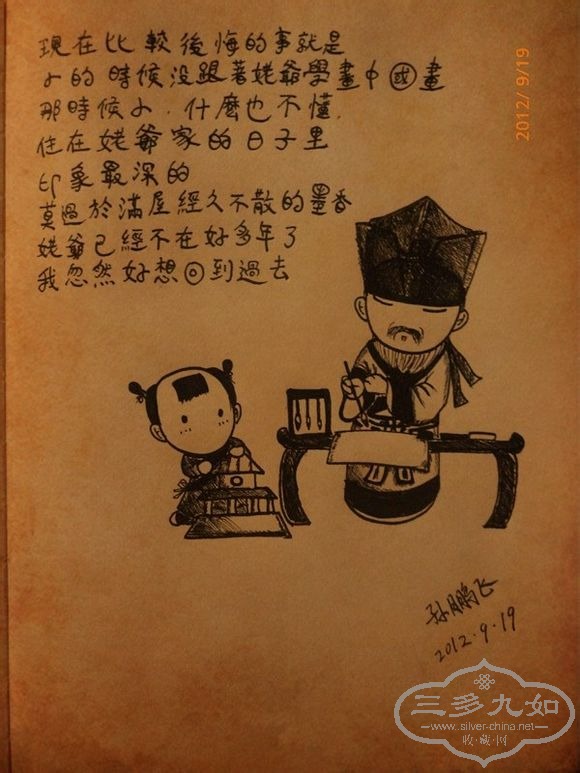 現在比較後悔的事就是
小的時候没跟著姥爺學畫中國畫
那時候小.什麼也不懂.
住在姥爺家的日子里
印象最深的
莫過於滿屋經久不散的墨香
姥爺已經不在好多年了
我忽然好想回到過去
2012/ 9/19
孙鹏飞
2012.9.19
三多九如
www.silver-china.net
收·藏·网